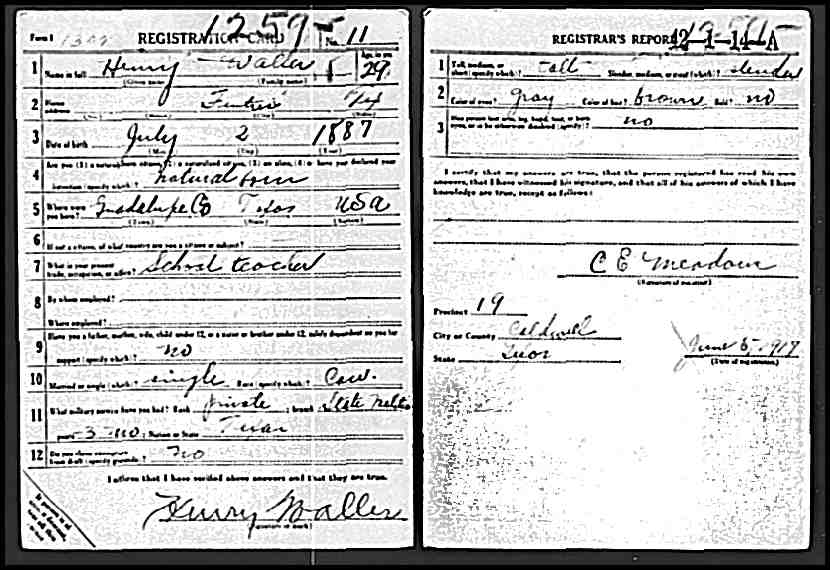 Form 1 REGISTRATION CARD No. 11
1 Name in full Henry Waller Age, in yrs. 29
(Given name) (Family name)
2 Home address Texas
(No.) (Street) (City) (State)
3 Date of birth July 2 1887
(Month) (Day) (Year)
4 Are you (1) a natural-born citizen, (2) a naturalized citizen, (3) an alien, (4) or have you declared your
intention (specify which)? natural born
5 Where were you born? Guadalupe Co Texas USA
(Town) (State) (Nation)
6 If not a citizen, of what country are you a citizen or subject?
7 What is your present trade, occupation, or office? School teacher
8 By whom employed?
Where employed?
9 Have you a father, mother, wife, child under 12, or a sister or brother under 12, solely dependent on you for
support (specify which)? no
10 Married or single (which)? single Race (specify which)? Cau.
11 What military service have you had? Rank private ; branch State Militia
years 3 mo ; Nation or State Texas
12 Do you claim exemption from draft (specify grounds)? No
I affirm that I have verified above answers and that they are true.
Henry Waller
REGISTRAR'S REPORT 42-1-14-A
1 Tall, medium, or short (specify which)? tall Slender, medium, or stout (which)? slender
2 Color of eyes? gray Color of hair? brown Bald? no
3 Has person lost arm, leg, hand, foot, or both eyes, or is he otherwise disabled (specify)? no
I certify that my answers are true, that the person registered has read his own
answers, that I have witnessed his signature, and that all of his answers of which I have
knowledge are true, except as follows:
C E Meadow
(Signature of registrar)
Precinct 19
City or County Caldwell
State Texas June 5, 1917
(Date of registration)